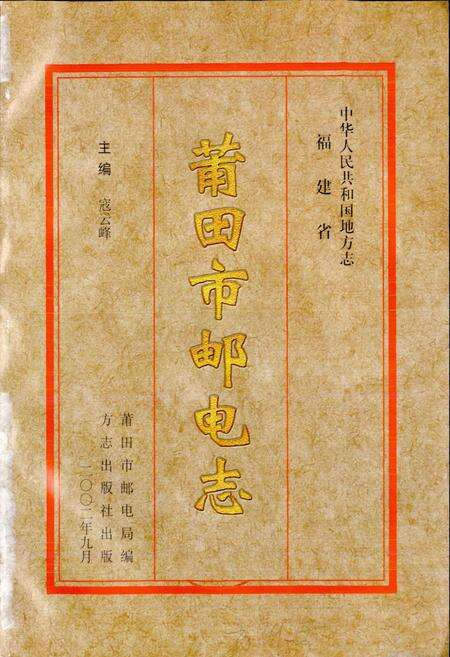 中华人民共和国地方志
福建省
莆田市邮电志
主编 寇云峰
莆田市邮电局编
方志出版社出版
二〇〇二年九月